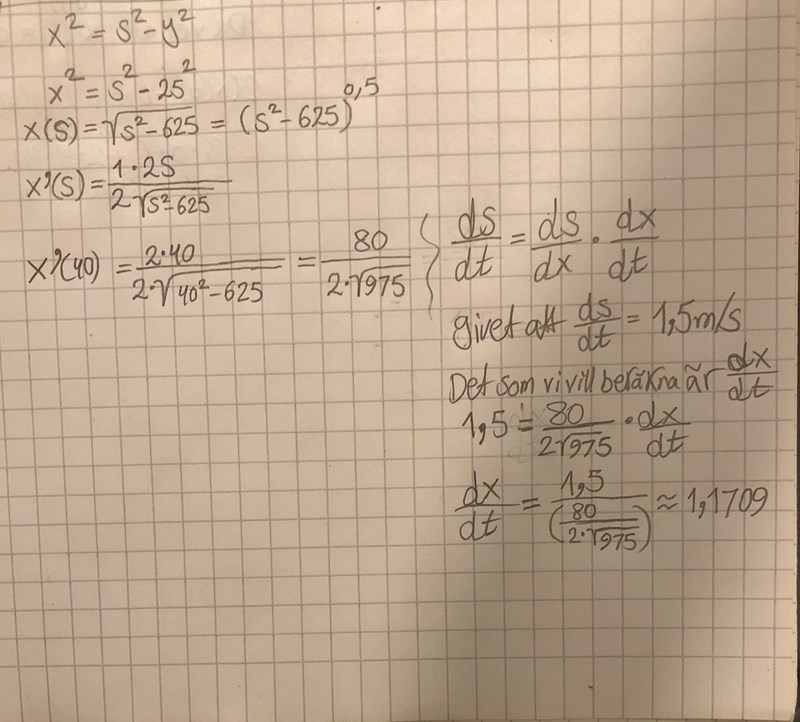 x² = s² - y²
x² = s² - 25²
x(s) = √s²-625 = (s² - 625)^0,5
x'(s) = 1·2s / 2·√s²-625
x'(40) = 2·40 / 2·√40²-625 = 80 / 2·√975
ds/dt = ds/dx · dx/dt
givet att ds/dt = 1,5m/s
Det som vi vill beräkna är dx/dt
1,5 = 80 / 2√975 · dx/dt
dx/dt = 1,5 / (80 / 2·√975) ≈ 1,1709